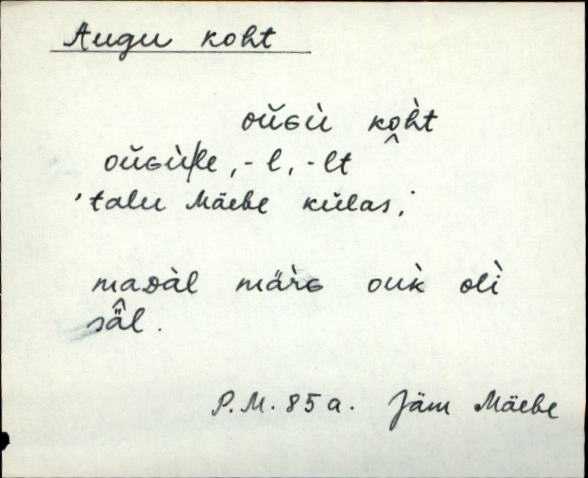 Augu koht
oŭɢù ko̭h̀t
oŭɢù/le, -l, -lt
'talu Mäebe külas;
maᴅàl mär̀ɢ ouk̀ olì
sä̂l.
P.M. 85 a. Jäm Mäebe